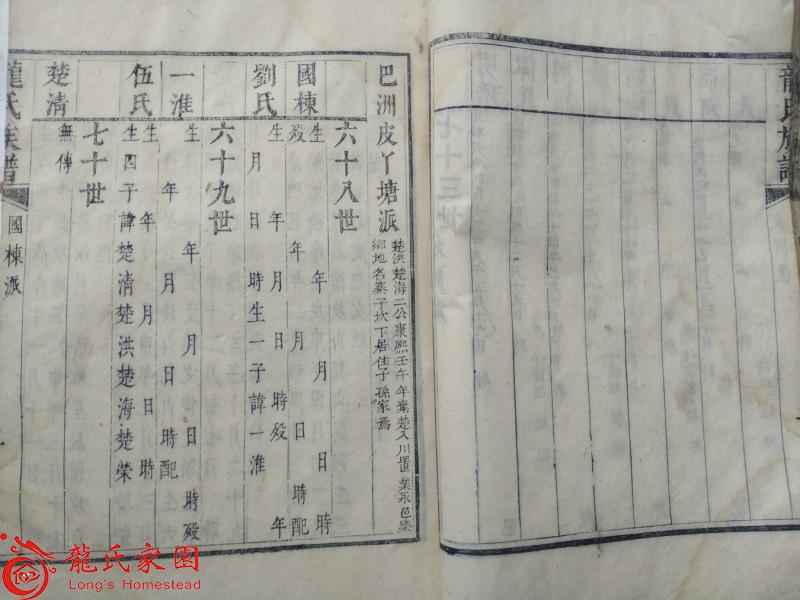 龍氏族譜
巴洲皮丫塘派
楚洪楚海二公康熙壬午年棄楚入川置業永邑樂
鄉地名寨子坎下居住子孫家焉
六十八世
國棟
生 年 月 日 時
歿 年 月 日 時配
劉氏
生 年 月 日 時歿 年
月 日 時生一子諱一淮
六十九世
一淮
生 年 月 日 時歿
年 月 日 時配
伍氏
生 年 月 日 時
生四子諱楚清楚洪楚海楚榮
七十世
楚清
無傳
龍氏族譜
國棟派
七十三世
龍氏家園
Long's Homestead